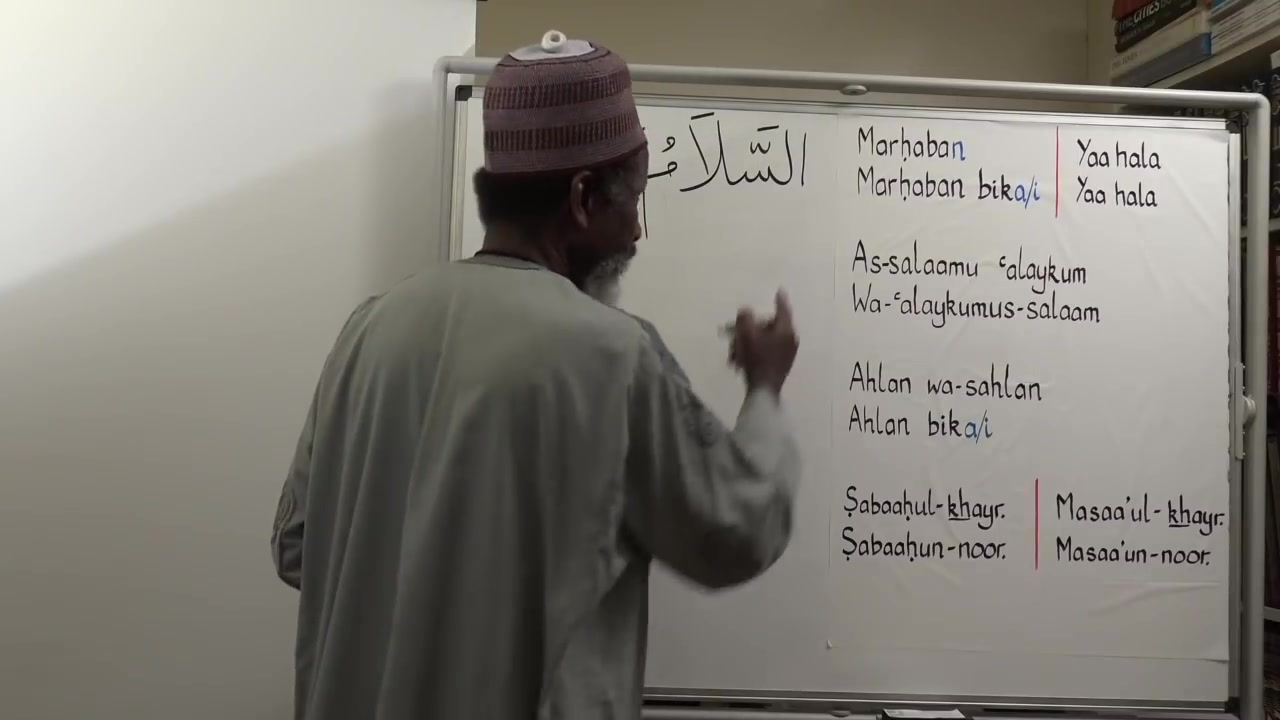 السَّلاَمُ
Marḥaban
Marḥaban bika/i
Yaa hala
Yaa hala
As-salaamu ʿalaykum
Wa-ʿalaykumus-salaam
Ahlan wa-sahlan
Ahlan bika/i
Ṣabaaḥul-khayr.
Ṣabaaḥun-noor.
Masaa'ul-khayr.
Masaa'un-noor.
THE CITIES